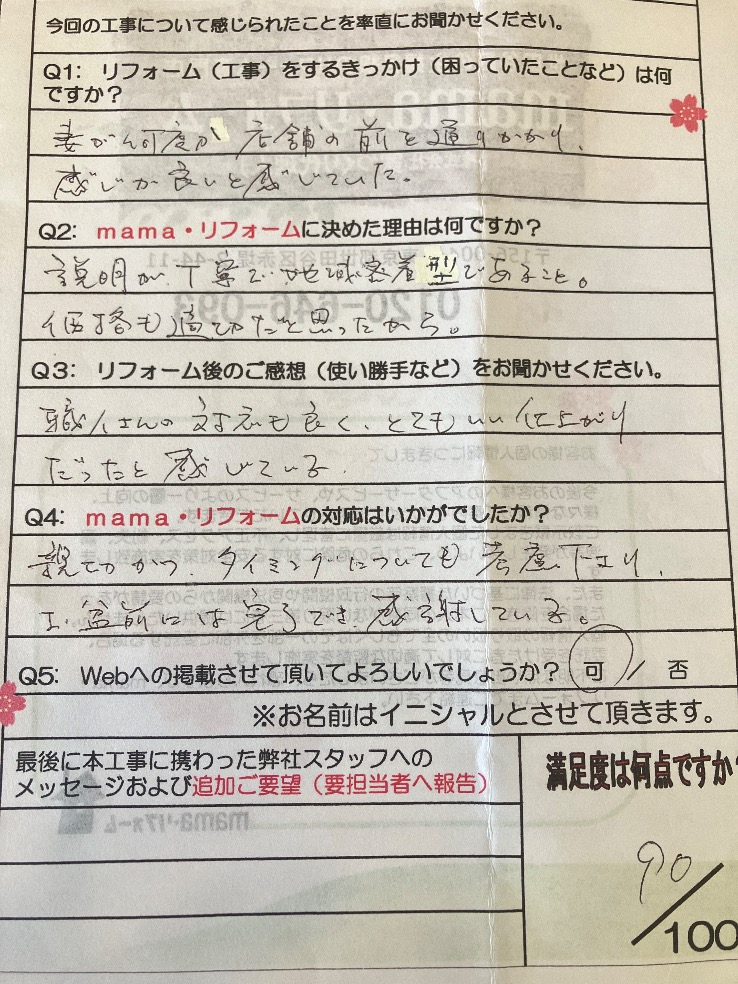 今回の工事について感じられたことを率直にお聞かせください。
Q1: リフォーム（工事）をするきっかけ（困っていたことなど）は何
ですか？
妻が何度か店舗の前を通りかかり、
感じが良いと感じていた。
Q2: mama・リフォームに決めた理由は何ですか？
説明が丁寧で地域密着型であること。
価格も適切だと思ったから。
Q3: リフォーム後のご感想（使い勝手など）をお聞かせください。
職人さんの対応も良く、とてもいい仕上がり
だったと感じている。
Q4: mama・リフォームの対応はいかがでしたか？
親切かつ、タイミングについても考慮下さり、
お盆前には完了でき感謝している。
Q5: Webへの掲載させて頂いてよろしいでしょうか？ 可 / 否
※お名前はイニシャルとさせて頂きます。
最後に本工事に携わった弊社スタッフへの
メッセージおよび追加ご要望（要担当者へ報告）
満足度は何点ですか？
90/100